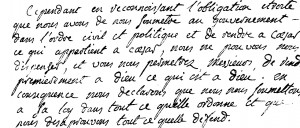 Cependant en reconnaissant l'obligation etroite
que nous avons de nous soumettre au Gouvernement
dans l'ordre civil et politique et de rendre a cesar
ce qui appartient a cesar, nous ne pouvons nous
dispenser, et vous nous permettrez messieurs, de rend
premierement a dieu ce qui est a dieu. en
consequence nous declarons que nous nous soumettons
a la loy dans tout ce qu'elle ordonne et que
nous desavouons tout ce qu'elle defend.